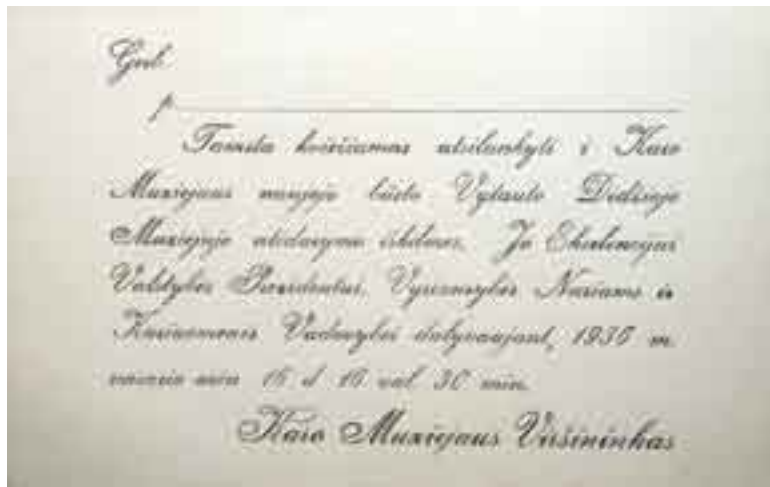 Gerb.
p.
Tamsta kviečiamas atsilankyti į Karo
Muziejaus naujojo būsto Vytauto Didžiojo
Muziejuje atidarymo iškilmes, Jo Ekscelencijai
Valstybės Prezidentui, Vyriausybės Nariams ir
Kariuomenės Vadovybei dalyvaujant, 1936 m.
vasario mėn. 16 d. 16 val. 30 min.
Karo Muziejaus Viršininkas